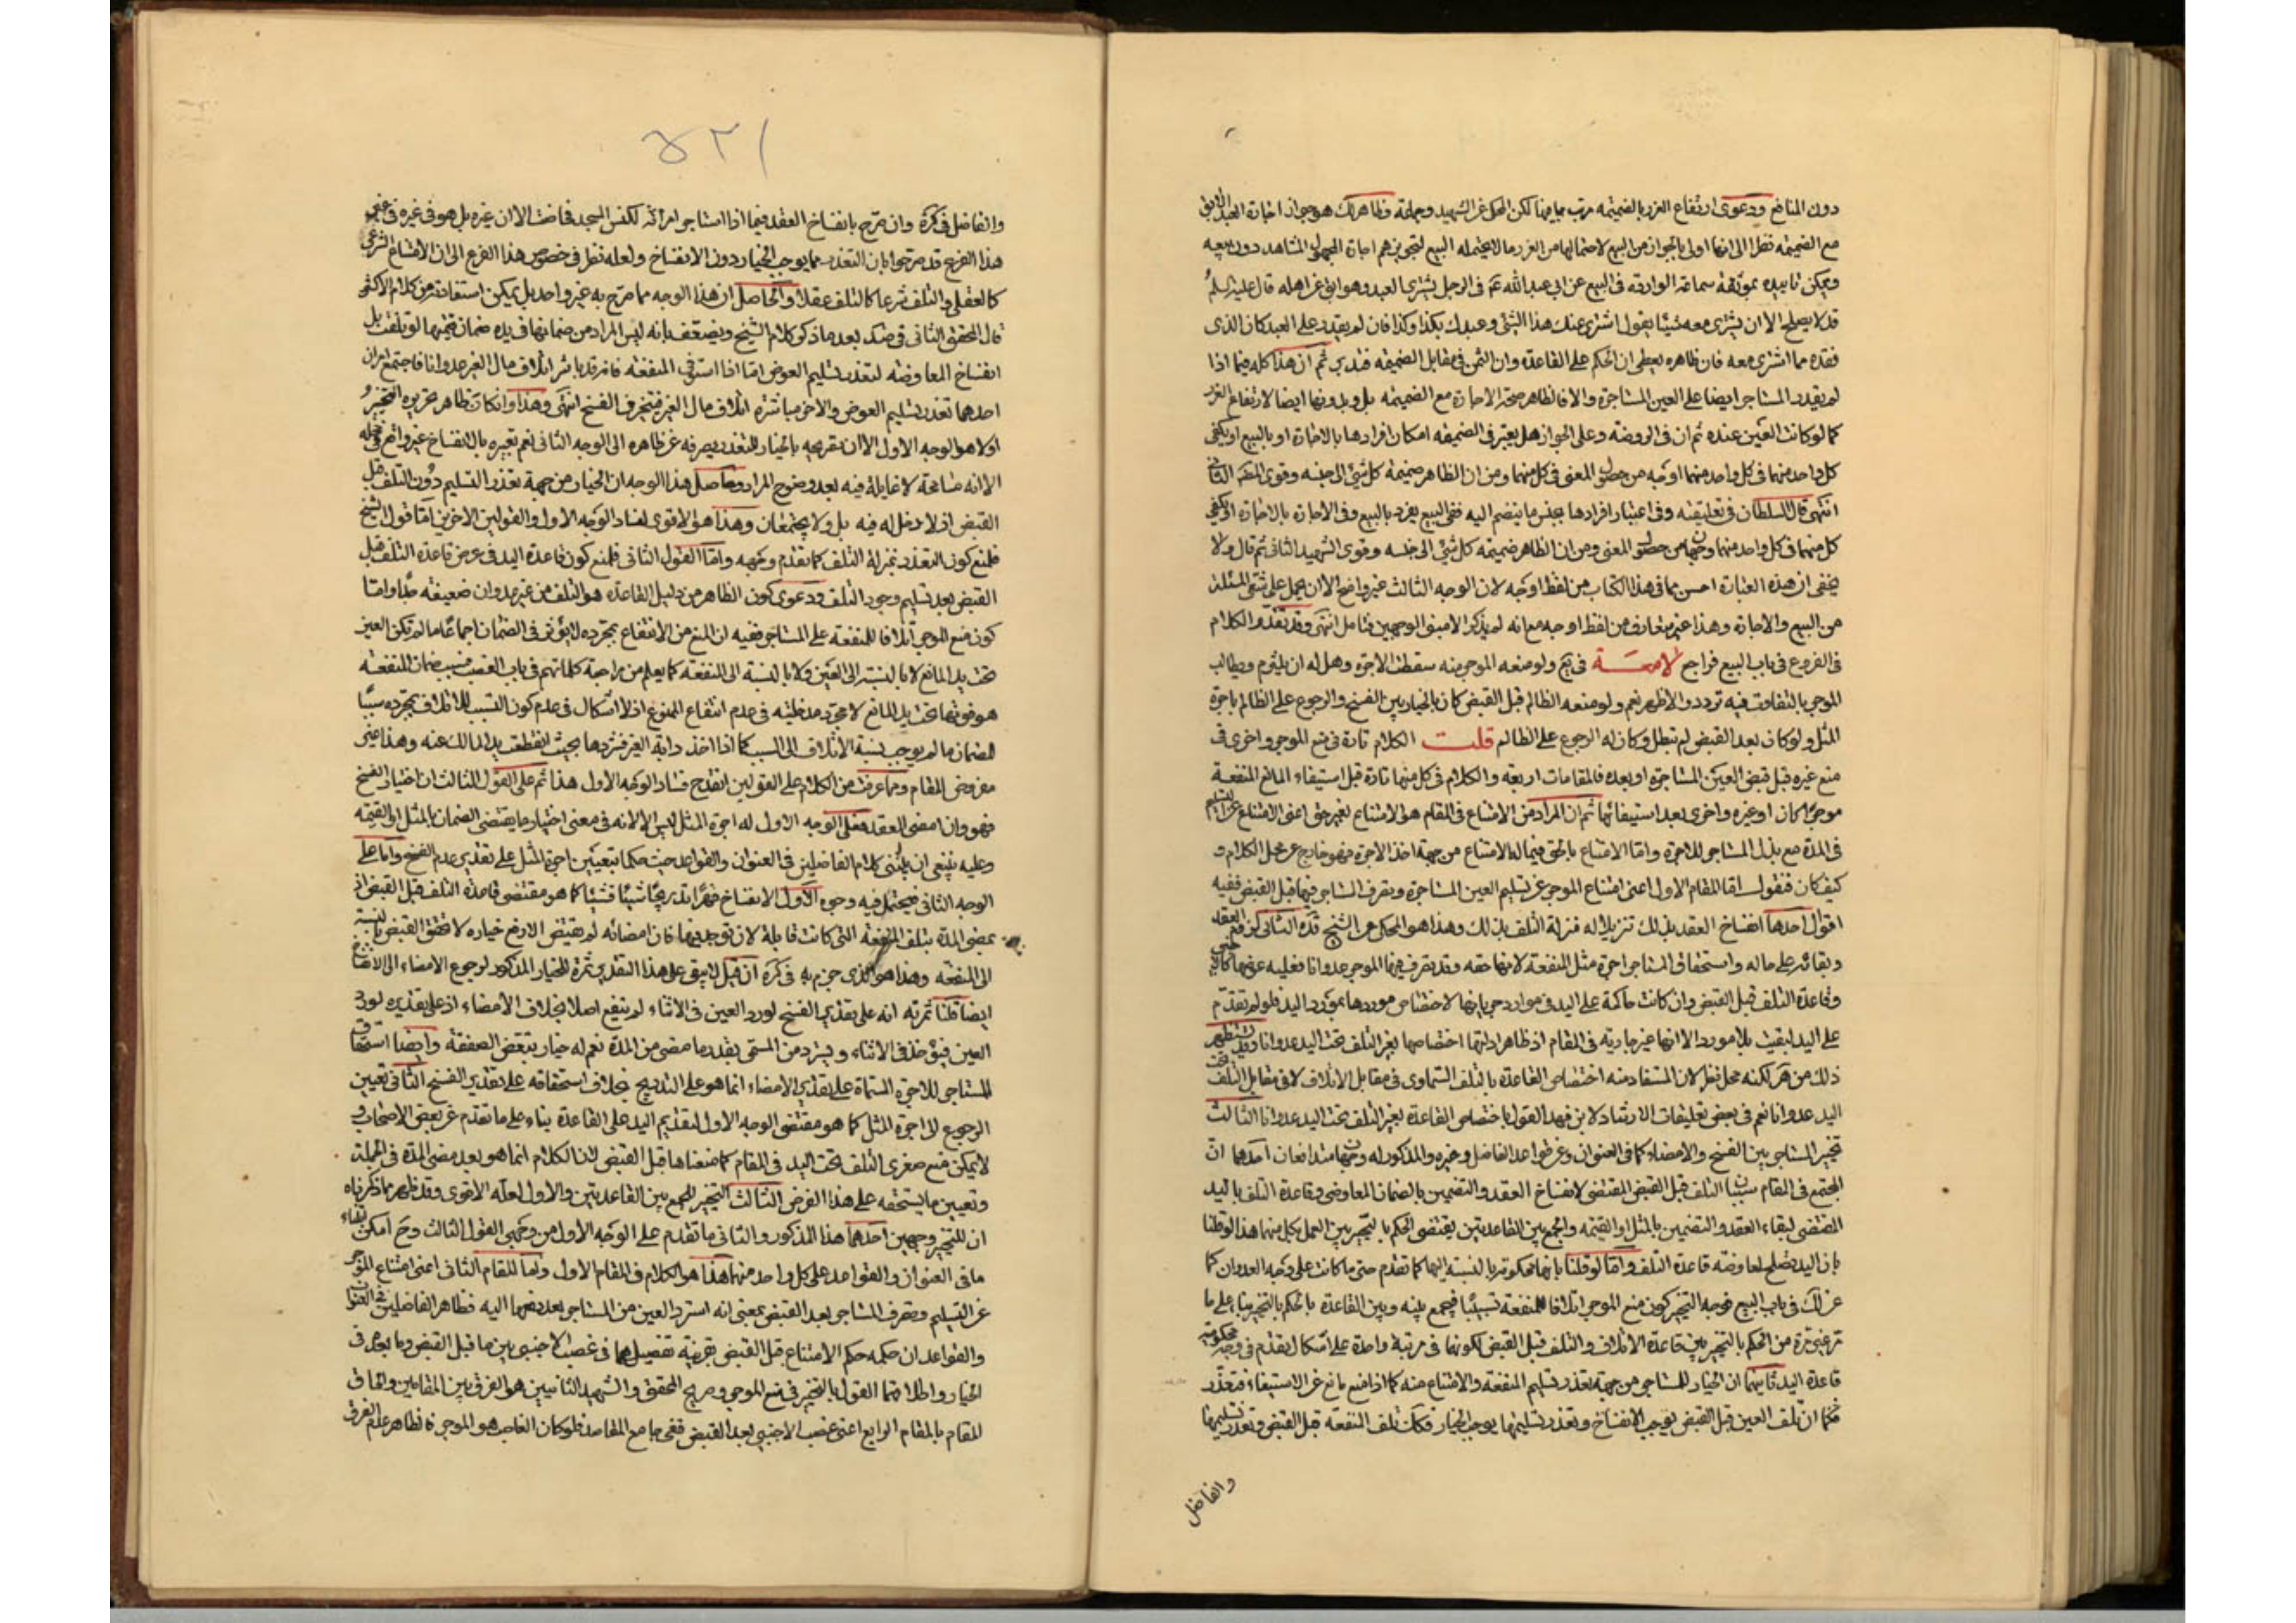 دون المنافع ودعوى ارتفاع الغرر بالضميمه مرتب بيانها لكن المحكى عن الشهيد وجماعة وظاهرك هو جواز اجارة العبد الابق
مع الضميمه نظرا الى انها اولى بالجواز من البيع لاحتمالها من الغرر ما لا يحتمله البيع لتجويزهم اجارة المجهول المشاهد دون بيعه
ويمكن تاييده بموثقة سماعة الواردة فى البيع عن ابى عبد الله عم فى الرجل يشترى العبد وهو ابق عن اهله قال عليه السلم
قد لا يصلح الا ان يشترى معه شيئا يقول اشترى عنك هذا الشئ وعبدك بكذا وكذا فان لم يقدر على العبد كان الذى
نقده مما اشترى معه فان ظاهره يعطى ان الحكم على القاعدة وان الثمن فى مقابل الضميمه فتدبر ثم ان هذا كله فيما اذا
لم يقدر المستاجر ايضا على العين المستاجرة والا فالظاهر صحة الاجارة مع الضميمه بل وبدونها ايضا لارتفاع الغرر
كما لو كانت العين عنده ثم ان فى الروضه وعلى الجواز هل يعتبر فى الضميمه امكان افرادها بالاجارة او بالبيع او يكفى
كل واحد منهما فى كل واحد منهما اوجه من حصول المعنى فى كل منهما ومن ان الظاهر ضميمة كل شئ الى جنسه وقوى الشهيد الثانى
انتهى قال السلطان فى تعليقته وفى اعتبار افرادها بجنس ما ينضم اليه ففى البيع يفرد بالبيع وفى الاجارة بالاجارة او يكفى
كل منهما فى كل واحد منهما وجهان من حصول المعنى ومن ان الظاهر ضميمة كل شئ الى جنسه وقوى الشهيد الثانى ثم قال ولا
يخفى ان هذه العبارة احسن مما فى هذا الكتاب من لفظ اوجه لان الوجه الثالث غير واضح الا ان يحمل على شقى المسئلة
من البيع والاجارة وهذا غير متعارف من لفظ اوجه مع انه لم يذكر الا مبنى الوجهين فتامل انتهى وقد تقدم الكلام
فى الفروع فى باب البيع فراجع لامعـة فى يع ولو منعه الموجر منه سقطت الاجرة وهل له ان يلتزم ويطالب
الموجر بالتفاوت فيه تردد والاظهر نعم ولو منعه الظالم قبل القبض كان بالخيار بين الفسخ والرجوع على الظالم باجرة
المثل ولو كان بعد القبض لم تبطل وكان له الرجوع على الظالم قلت الكلام تارة فى منع الموجر واخرى فى
منع غيره قبل قبض العين المستاجرة او بعده فالمقامات اربعه والكلام فى كل منها تارة قبل استيفاء المانع المنفعة
موجرا كان او غيره واخرى بعد استيفائها ثم ان المراد من الامتناع فى المقام هو الامتناع بغير حق اعنى الامتناع عن التسليم
فى المدة مع بذل المستاجر للاجرة واما الامتناع بالحق فيما له الامتناع من جهة اخذ الاجرة فهو خارج عن محل الكلام و
كيف كان فنقول اما المقام الاول اعنى امتناع الموجر عن تسليم العين المستاجرة وتصرف المستاجر فيها قبل القبض ففيه
اقوال احدها انفساخ العقد بذلك تنزيلا له منزلة التلف بذلك وهذا هو المحكى عن الشيخ قده الثانى لزوم العقد
وبقائه على حاله واستحقاق المستاجر اجرة مثل المنفعة لانها حقه وقد تصرف فيها الموجر عدوانا فعليه عوضها
وقاعدة التلف قبل القبض وان كانت حاكمة على اليد فى موارد جريانها لاختصاص موردها بمورد اليد فلو لم تقدم
على اليد لبقيت بلا مورد الا انها غير جارية فى المقام اذ ظاهر ادلتها اختصاصها بغير التلف تحت اليد عدوانا وقد يستظهر
ذلك من هر لكنه محل نظر لان المستفاد منه اختصاص القاعدة بالتلف السماوى فى مقابل الاتلاف لا فى مقابل التلف تحت
اليد عدوانا نعم فى بعض تعليقات الارشاد لابن فهد القول باختصاص القاعدة بغير التلف تحت اليد عدوانا الثالث
تخير المستاجر بين الفسخ والامضاء كما فى العنوان وعن قواعد الفاضل وغيره والمذكور له وجهان متدافعان احدهما ان
المجتمع فى المقام سببان التلف قبل القبض المقتضى لانفساخ العقد والتضمين بالضمان المعاوضى وقاعدة التلف باليد
المقتضى لبقاء العقد والتضمين بالمثل او القيمة والجمع بين القاعدتين يقتضى الحكم بالتخيير بين العمل بكل منهما هذا لو قلنا
بان اليد تصلح لمعارضة قاعدة التلف واما لو قلنا بانها محكومة بالنسبة اليها كما تقدم حتى ما كانت على وجه العدوان كما
عن لك فى باب البيع فوجه التخير كون منع الموجر اتلافا للمنفعة تسبيبا فيجمع بينه وبين القاعدة بالحكم بالتخير بناء على ما
مر غير مرة من الحكم بالتخير بين قاعدة الاتلاف والتلف قبل القبض لكونهما فى مرتبة واحدة على اشكال تقدم فى وجه محكومية
قاعدة اليد ثانيهما ان الخيار للمستاجر من جهة تعذر تسليم المنفعة والامتناع منه كما اذا منع مانع عن الاستيفاء فتعذر
فكما ان تلف العين قبل القبض يوجب الانفساخ وتعذر تسليمها يوجب الخيار فكك تلف المنفعة قبل القبض وتعذر تسليمها
والفاضل
٥٢١
والفاضل فى كرة وان صرح بانفساخ العقد فيما اذا استاجر امراة لكنس المسجد فحاضت الا ان غيره بل هو فى غيره فى غير
هذا الفرع قد صرحوا بان التعذر مما يوجب الخيار دون الانفساخ ولعله نظر فى خصوص هذا الفرع الى ان الامتناع الشرعى
كالعقلى والتلف شرعا كالتلف عقلا والحاصل ان هذا الوجه مما صرح به غير واحد بل يمكن استفادته من كلام الاكثر
قال المحقق الثانى فى ضد بعد ما ذكر كلام الشيخ ويضعف بانه ليس المراد من ضمانها فى يده ضمان قيمتها لو تلفت بل
انفساخ المعاوضه لتعذر تسليم العوض اما اذا استوفى المنفعة فانه قد باشر اتلاف مال الغير عدوانا فاجتمع امران
احدهما تعذر تسليم العوض والاخر مباشرة اتلاف مال الغير فيتخير فى الفسخ انتهى وهذا وان كان ظاهر تحريره التخير
اولا هو الوجه الاول الا ان تفريعه بالخيار للتعذر يصرفه عن ظاهره الى الوجه الثانى نعم تعبيره بالانفساخ غير واقع فى محله
الا انه مسامحة لا غايلة فيه بعد وضوح المراد وحاصل هذا الوجه ان الخيار من جهة تعذر التسليم دون التلف قبل
القبض اذ لا دخل له فيه بل ولا يجتمعان وهذا هو الاقوى لفساد الوجه الاول والقولين الاخرين اما قول الشيخ
فلمنع كون التعذر بمنزلة التلف كما تقدم وجهه واما القول الثانى فلمنع كون قاعدة اليد فى عرض قاعدة التلف قبل
القبض بعد تسليم وجود التلف ودعوى كون الظاهر من دليل القاعدة هو التلف من غير عدوان ضعيفة جدا واما
كون منع الموجر اتلافا للمنفعة على المستاجر ففيه ان المنع من الانتفاع بمجرده لا يؤثر فى الضمان اجماعا ما لم تكن العين
تحت يد المانع لا بالنسبة الى العين ولا بالنسبة الى المنفعة كما يعلم من مراجعة كلماتهم فى باب الغصب فسبب ضمان المنفعة
هو فوتها تحت يد المانع لا مجرد مدخليته فى عدم انتفاع الممنوع اذ لا اشكال فى عدم كون التسبب للاتلاف بمجرده سببا
للضمان ما لم يوجب نسبة الاتلاف الى السبب كما اذا اخذ دابة الغير فشردها بحيث انقطعت يد المالك عنه وهذا غير
مفروض المقام ومما عرفت من الكلام على القولين انقدح فساد الوجه الاول هذا ثم على القول الثالث ان اختيار الفسخ
فهو وان امضى العقد فعلى الوجه الاول له اجرة المثل ليس الا لانه فى معنى اختيار ما يقتضى الضمان بالمثل او القيمة
وعليه ينبغى ان يبتنى كلام الفاضلين فى العنوان والقواعد حيث حكما بتعيين اجرة المثل على تقدير عدم الفسخ واما على
الوجه الثانى فيحتمل فيه وجوه الاول الانفساخ قهرا تدريجا شيئا فشيئا كما هو مقتضى قاعدة التلف قبل القبض اذ
بمضى المدة يتلف المنفعة التى كانت قابلة لان توجد فيها فان امضائه لم يقتض الا رفع خياره لا تحقق القبض بالنسبة
الى المنفعة وهذا هو الذى جزم به فى كرة ان قيل لا يبقى على هذا التقدير ثمرة للخيار المذكور لرجوع الامضاء الى الانفساخ
ايضا قلنا ثمرته انه على تقدير الفسخ لو رد العين فى الاثناء لم ينتفع اصلا بخلاف الامضاء اذ على تقديره لو رد
العين فيؤخذ فى الاثناء ويسترد من المسمى بقدر ما مضى من المدة نعم له خيار تبعض الصفقة وايضا استحقاق
المستاجر للاجرة المسماة على تقدير الامضاء انما هو على التدريج بخلاف استحقاقه على تقدير الفسخ الثانى تعيين
الرجوع الى اجرة المثل كما هو مقتضى الوجه الاول لتقديم اليد على القاعدة بناء على ما تقدم عن بعض الاصحاب و
لا يمكن منع صغرى التلف تحت اليد فى المقام كما منعناها قبل القبض لان الكلام انما هو بعد مضى المدة فى الجملة
وتعيين ما يستحقه على هذا الفرض الثالث التخير للجمع بين القاعدتين والاول لعله الاقوى وقد ظهر مما ذكرناه
ان للتخير وجهين احدهما هذا المذكور والثانى ما تقدم على الوجه الاول من وجهى القول الثالث وح امكن بناء
ما فى العنوان والقواعد على كل واحد منهما هذا هو الكلام فى المقام الاول واما المقام الثانى اعنى امتناع الموجر
عن التسليم وتصرف المستاجر بعد القبض بمعنى انه استرد العين من المستاجر بعد دفعها اليه فظاهر الفاضلين فى العنوان
والقواعد ان حكمه حكم الامتناع قبل القبض بقرينة تفصيلهما فى غصب الاجنبى بين ما قبل القبض وما بعده فى
الخيار واطلاقهما القول بالتخير فى منع الموجر وصريح المحقق والشهيد الثانيين هو الفرق بين المقامين والحاق
المقام بالمقام الرابع اعنى غصب الاجنبى بعد القبض ففى جامع المقاصد فلو كان الغاصب هو الموجر فالظاهر عدم الفرق